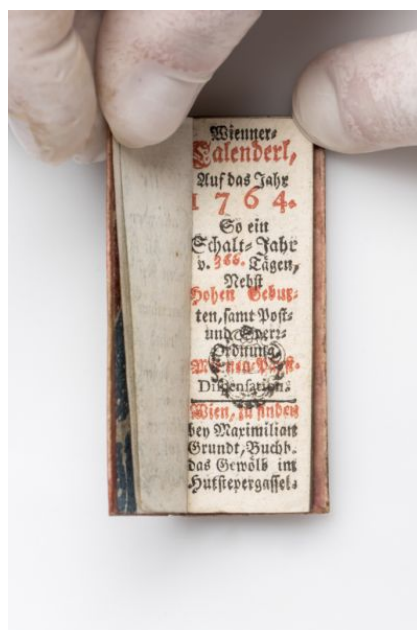 Wienner-
Calenderl,
Auf das Jahr
1764.
So ein
Schalt-Jahr
v. 366. Tägen,
Nebst
Hohen Gebur-
ten, samt Post-
und Sperr-
Ordnung,
Dispensation.
Wien, zu finden
bey Maximilian
Grundt, Buchb.
das Gewölb im
Hutstepergassel.